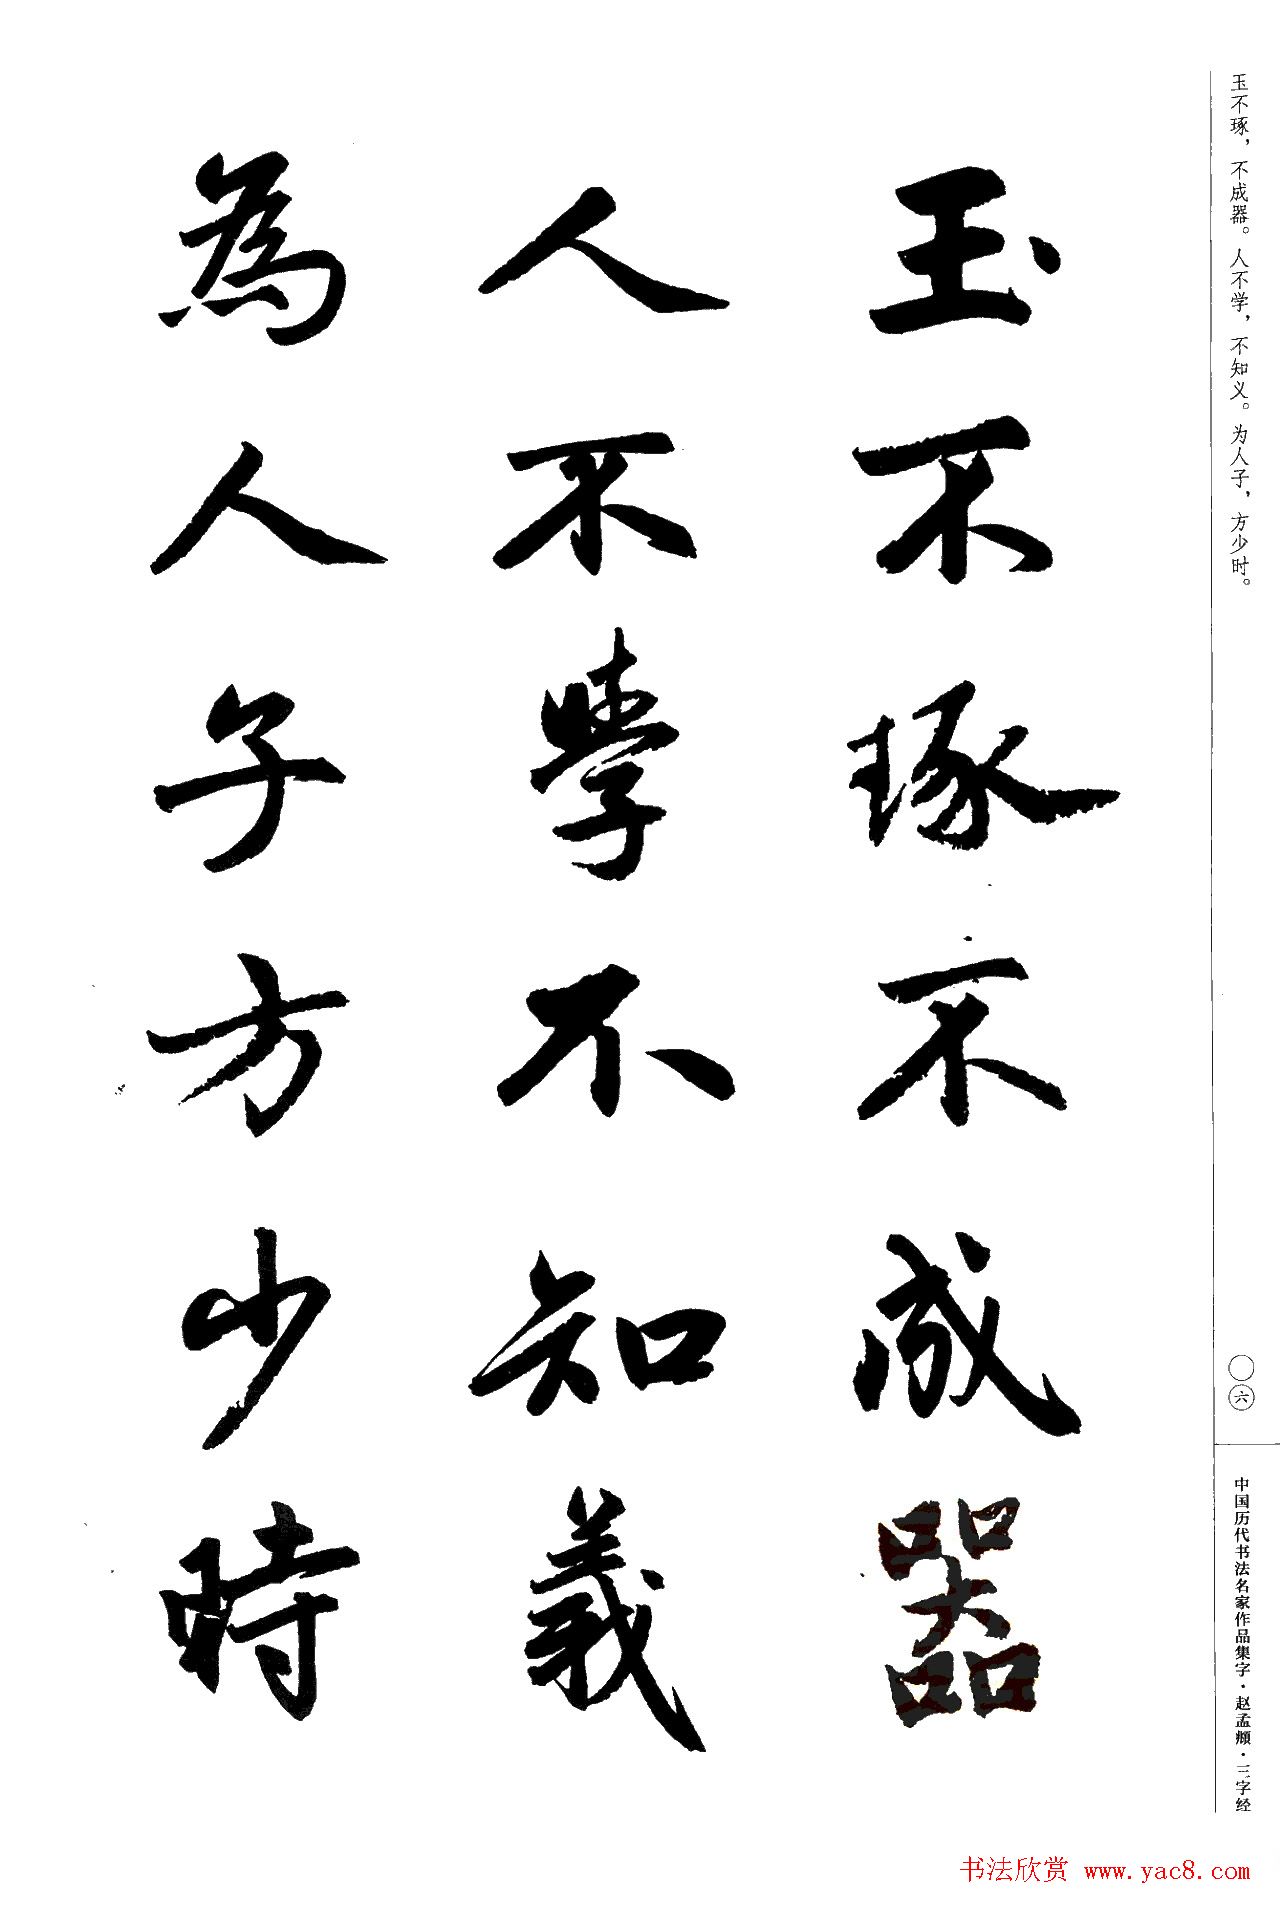 玉不琢，不成器。人不学，不知义。为人子，方少时。
玉不琢不成器
人不學不知義
為人子方少時
〇六
中国历代书法名家作品集字·赵孟頫·三字经
书法欣赏 www.yac8.com